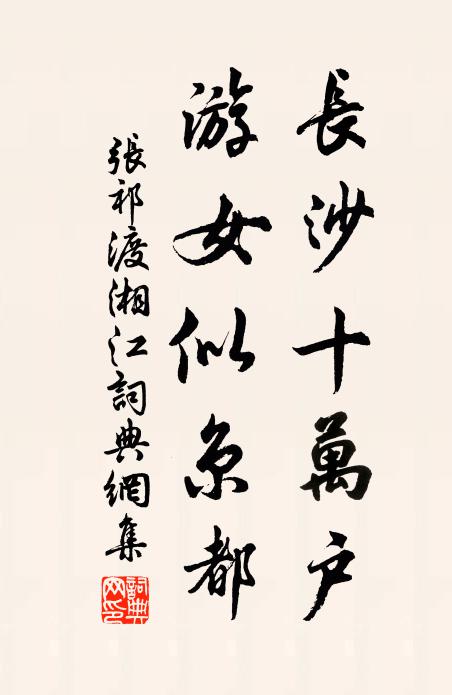 長沙十萬戶
游女似京都
張祁渡湘江詞典網集
詞典網印